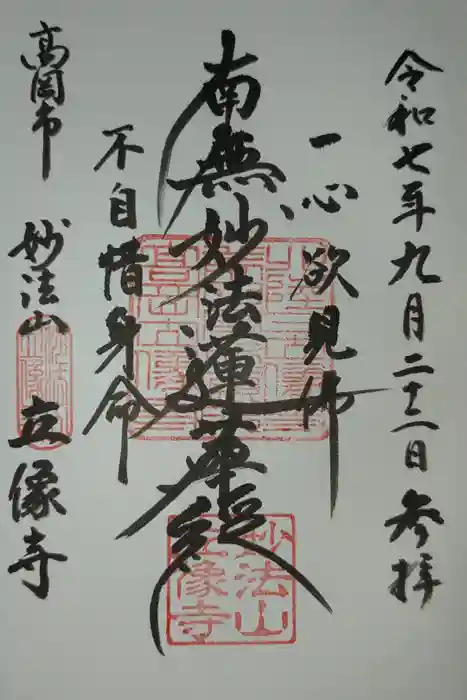 令和七年九月二十八日参拝
一心欲見佛
南無妙法蓮華経
不自惜身命
高岡市 妙法山 立像寺
妙法山
立像寺